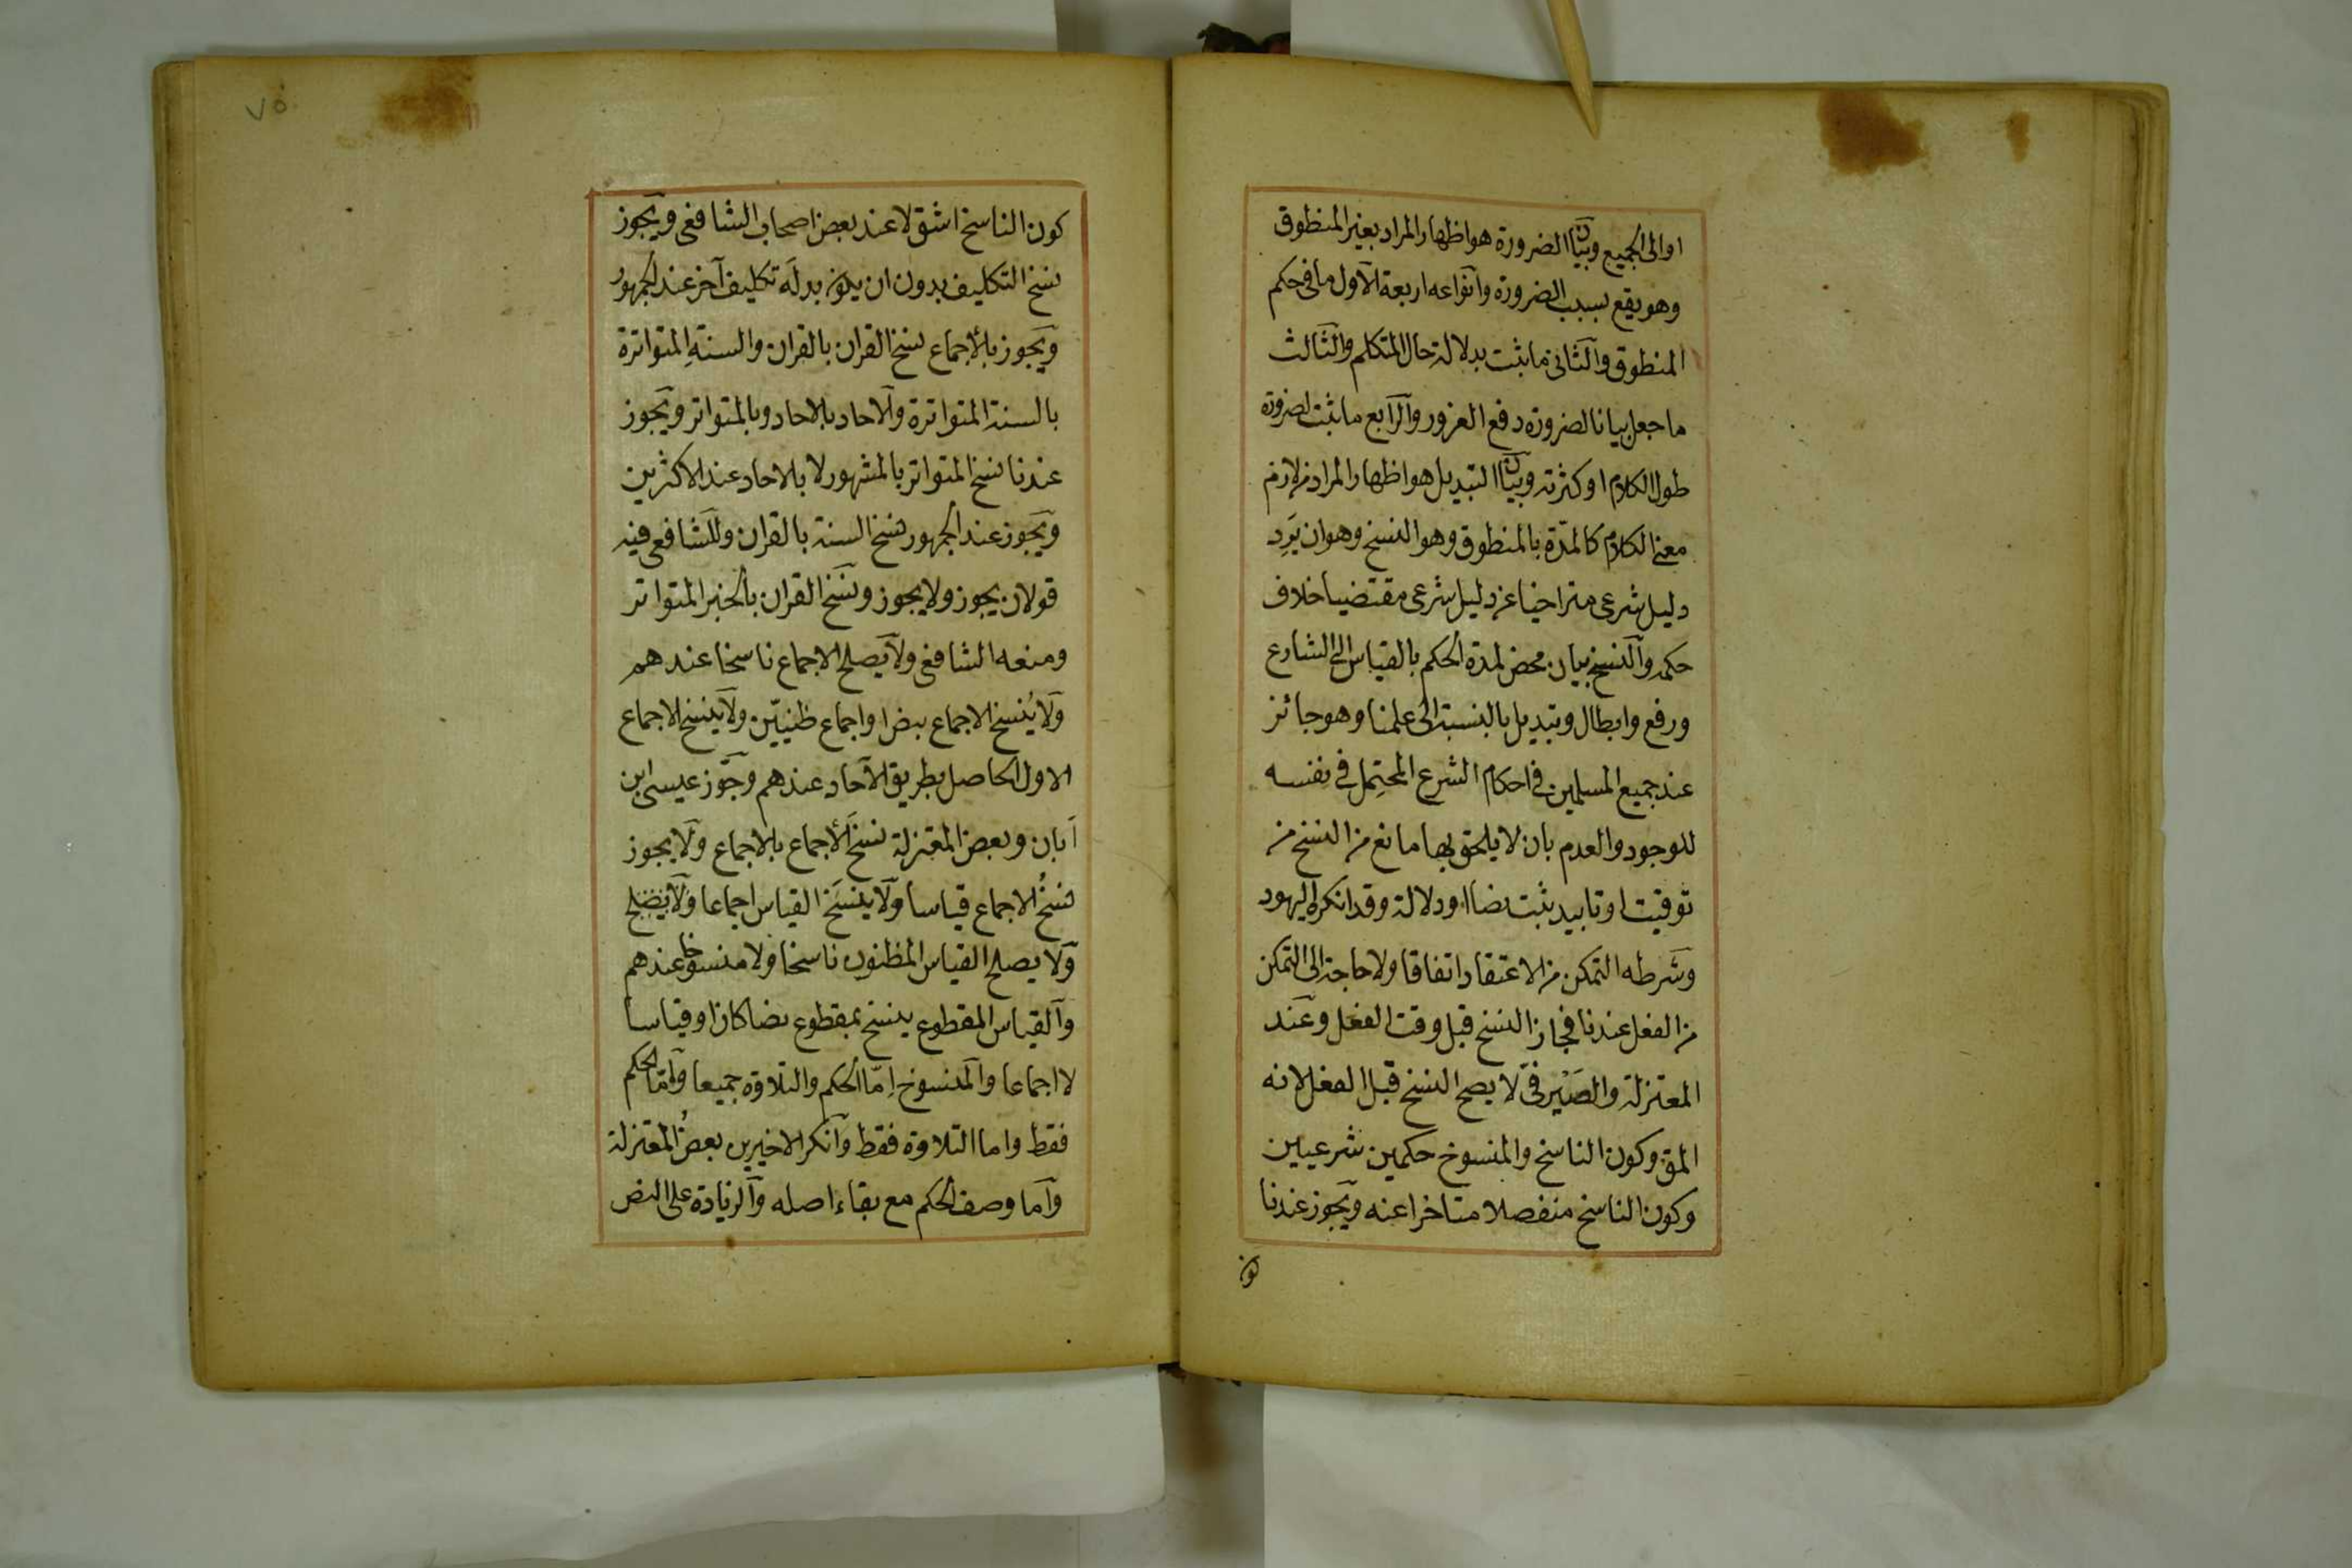 او الى الجميع وبيان الضرورة هو اظهار المراد بغير المنطوق
وهو يقع بسبب الضرورة وانواعه اربعة الاول ما في حكم
المنطوق والثاني ما يثبت بدلالة حال المتكلم والثالث
ما جعل بيانا لضرورة دفع الغرور والرابع ما يثبت لضرورة
طول الكلام او كثرته وبيان التبديل هو اظهار المراد من لازم
معنى الكلام كالمدّة بالمنطوق وهو النسخ وهو ان يَرِد
دليل شرعى متراخيا عن دليل شرعى مقتضيا خلاف
حكمه والنسخ بيان محض لمدة الحكم بالقياس الى الشارع
ورفع وابطال وتبديل بالنسبة الى علمنا وهو جائز
عند جميع المسلمين فى احكام الشرع المحتمِل فى نفسه
للوجود والعدم بان لا يلحق بها مانع من النسخ من
توقيت او تابيد يثبت نصا او دلالة وقد انكره اليهود
وشرطه التمكن من الاعتقاد اتفاقا ولا حاجة الى التمكن
من الفعل عندنا فجاز النسخ قبل وقت الفعل وعند
المعتزلة والصَيْرفى لا يصح النسخ قبل الفعل لانه
المق وكون الناسخ والمنسوخ حكمين شرعيين
وكون الناسخ منفصلا متاخرا عنه ويجوز عندنا
كون
٧٥
كون الناسخ اشق لا عند بعض اصحاب الشافعى ويجوز
نسخ التكليف بدون ان يكون بدلَه تكليف آخر عند الجمهور
ويجوز بالأجماع نسخ القران بالقران والسنةِ المتواترة
بالسنة المتواترة والاحاد بالاحاد وبالمتواتر ويجوز
عندنا نسخ المتواتر بالمشهور لا بالاحاد عند الاكثرين
ويجوز عند الجمهور نسخ السنة بالقران وللشافعى فيه
قولان يجوز ولا يجوز ونسخ القران بالخبر المتواتر
ومنعه الشافعى ولا يصلح الاجماع ناسخا عندهم
ولا يُنسخ الاجماع بنص او اجماع ظنيّين ولا ينسخ الاجماع
الاول الحاصل بطريق الآحاد عندهم وجوّز عيسى ابن
اَبان وبعض المعتزلة نسخَ الأجماع بالاجماع ولا يجوز
نسخُ الاجماع قياسا ولا ينسَخ القياس اجماعا ولا يصلح
ولا يصلح القياس المظنون ناسخا ولا منسوخا عندهم
والقياس المقطوع ينسخ بمقطوع نصا كان او قياسا
لا اجماعا والمنسوخ اِمّا الحكم والتلاوة جميعا وامّا الحكم
فقط واما التلاوة فقط وانكر الاخيرين بعضُ المعتزلة
واما وصف الحكم مع بقاء اصله والزيادة على النص